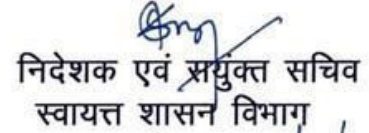 निदेशक एवं सयुंक्त सचिव
स्वायत्त शासन विभाग